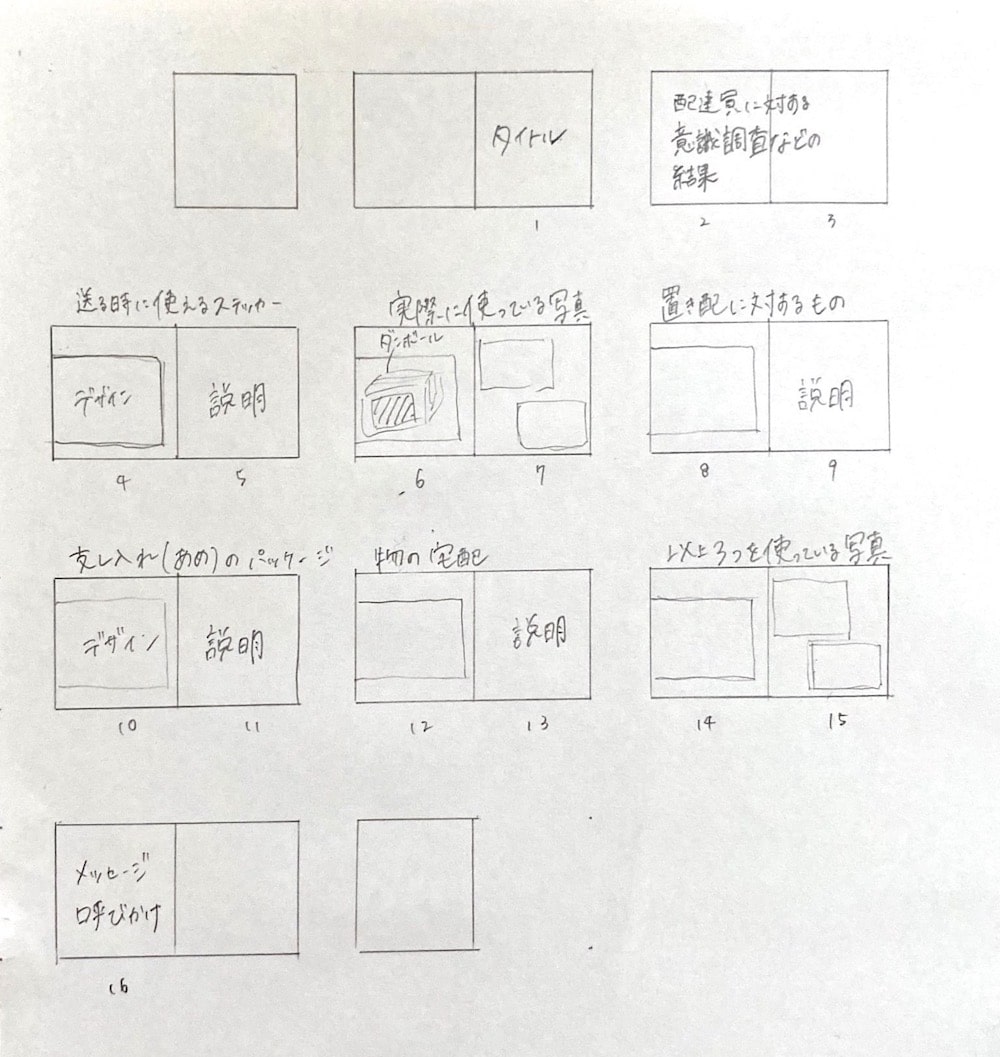 タイトル
1
配達員に対する
意識調査などの
結果
2
3
送る時に使えるステッカー
デザイン
説明
4
5
実際に使っている写真
ダンボール
6
7
置き配に対するもの
説明
8
9
差し入れ(あめ)のパッケージ
デザイン
説明
10
11
物の宅配
説明
12
13
以上3つを使っている写真
14
15
メッセージ
呼びかけ
16